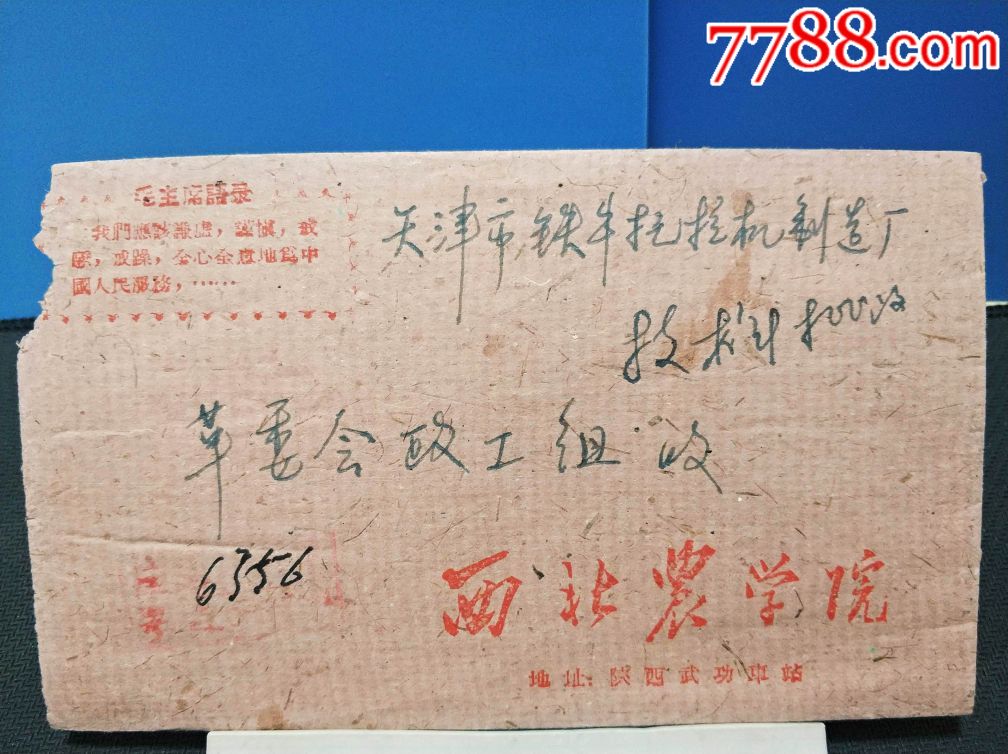 7788.com
毛主席語录
我們應該謙虛，謹慎，戒
驕，戒躁，全心全意地爲中
國人民服務，……
天津市铁牛拖拉机制造厂
技术科
革委会政工组 收
6356
西北農学院
地址：陕西武功車站